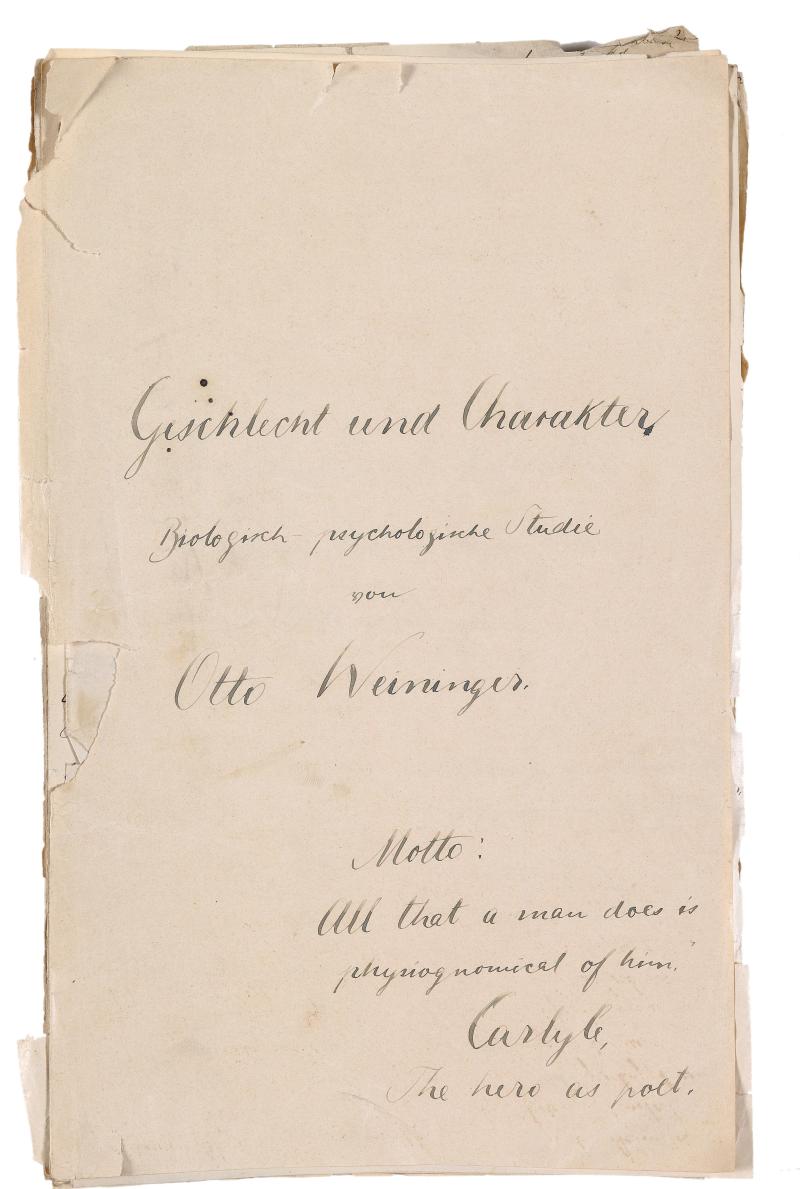 Geschlecht und Charakter,
Biologisch-psychologische Studie
von
Otto Weininger.
Motto:
All that a man does is
physiognomical of him."
Carlyle,
The hero as poet.